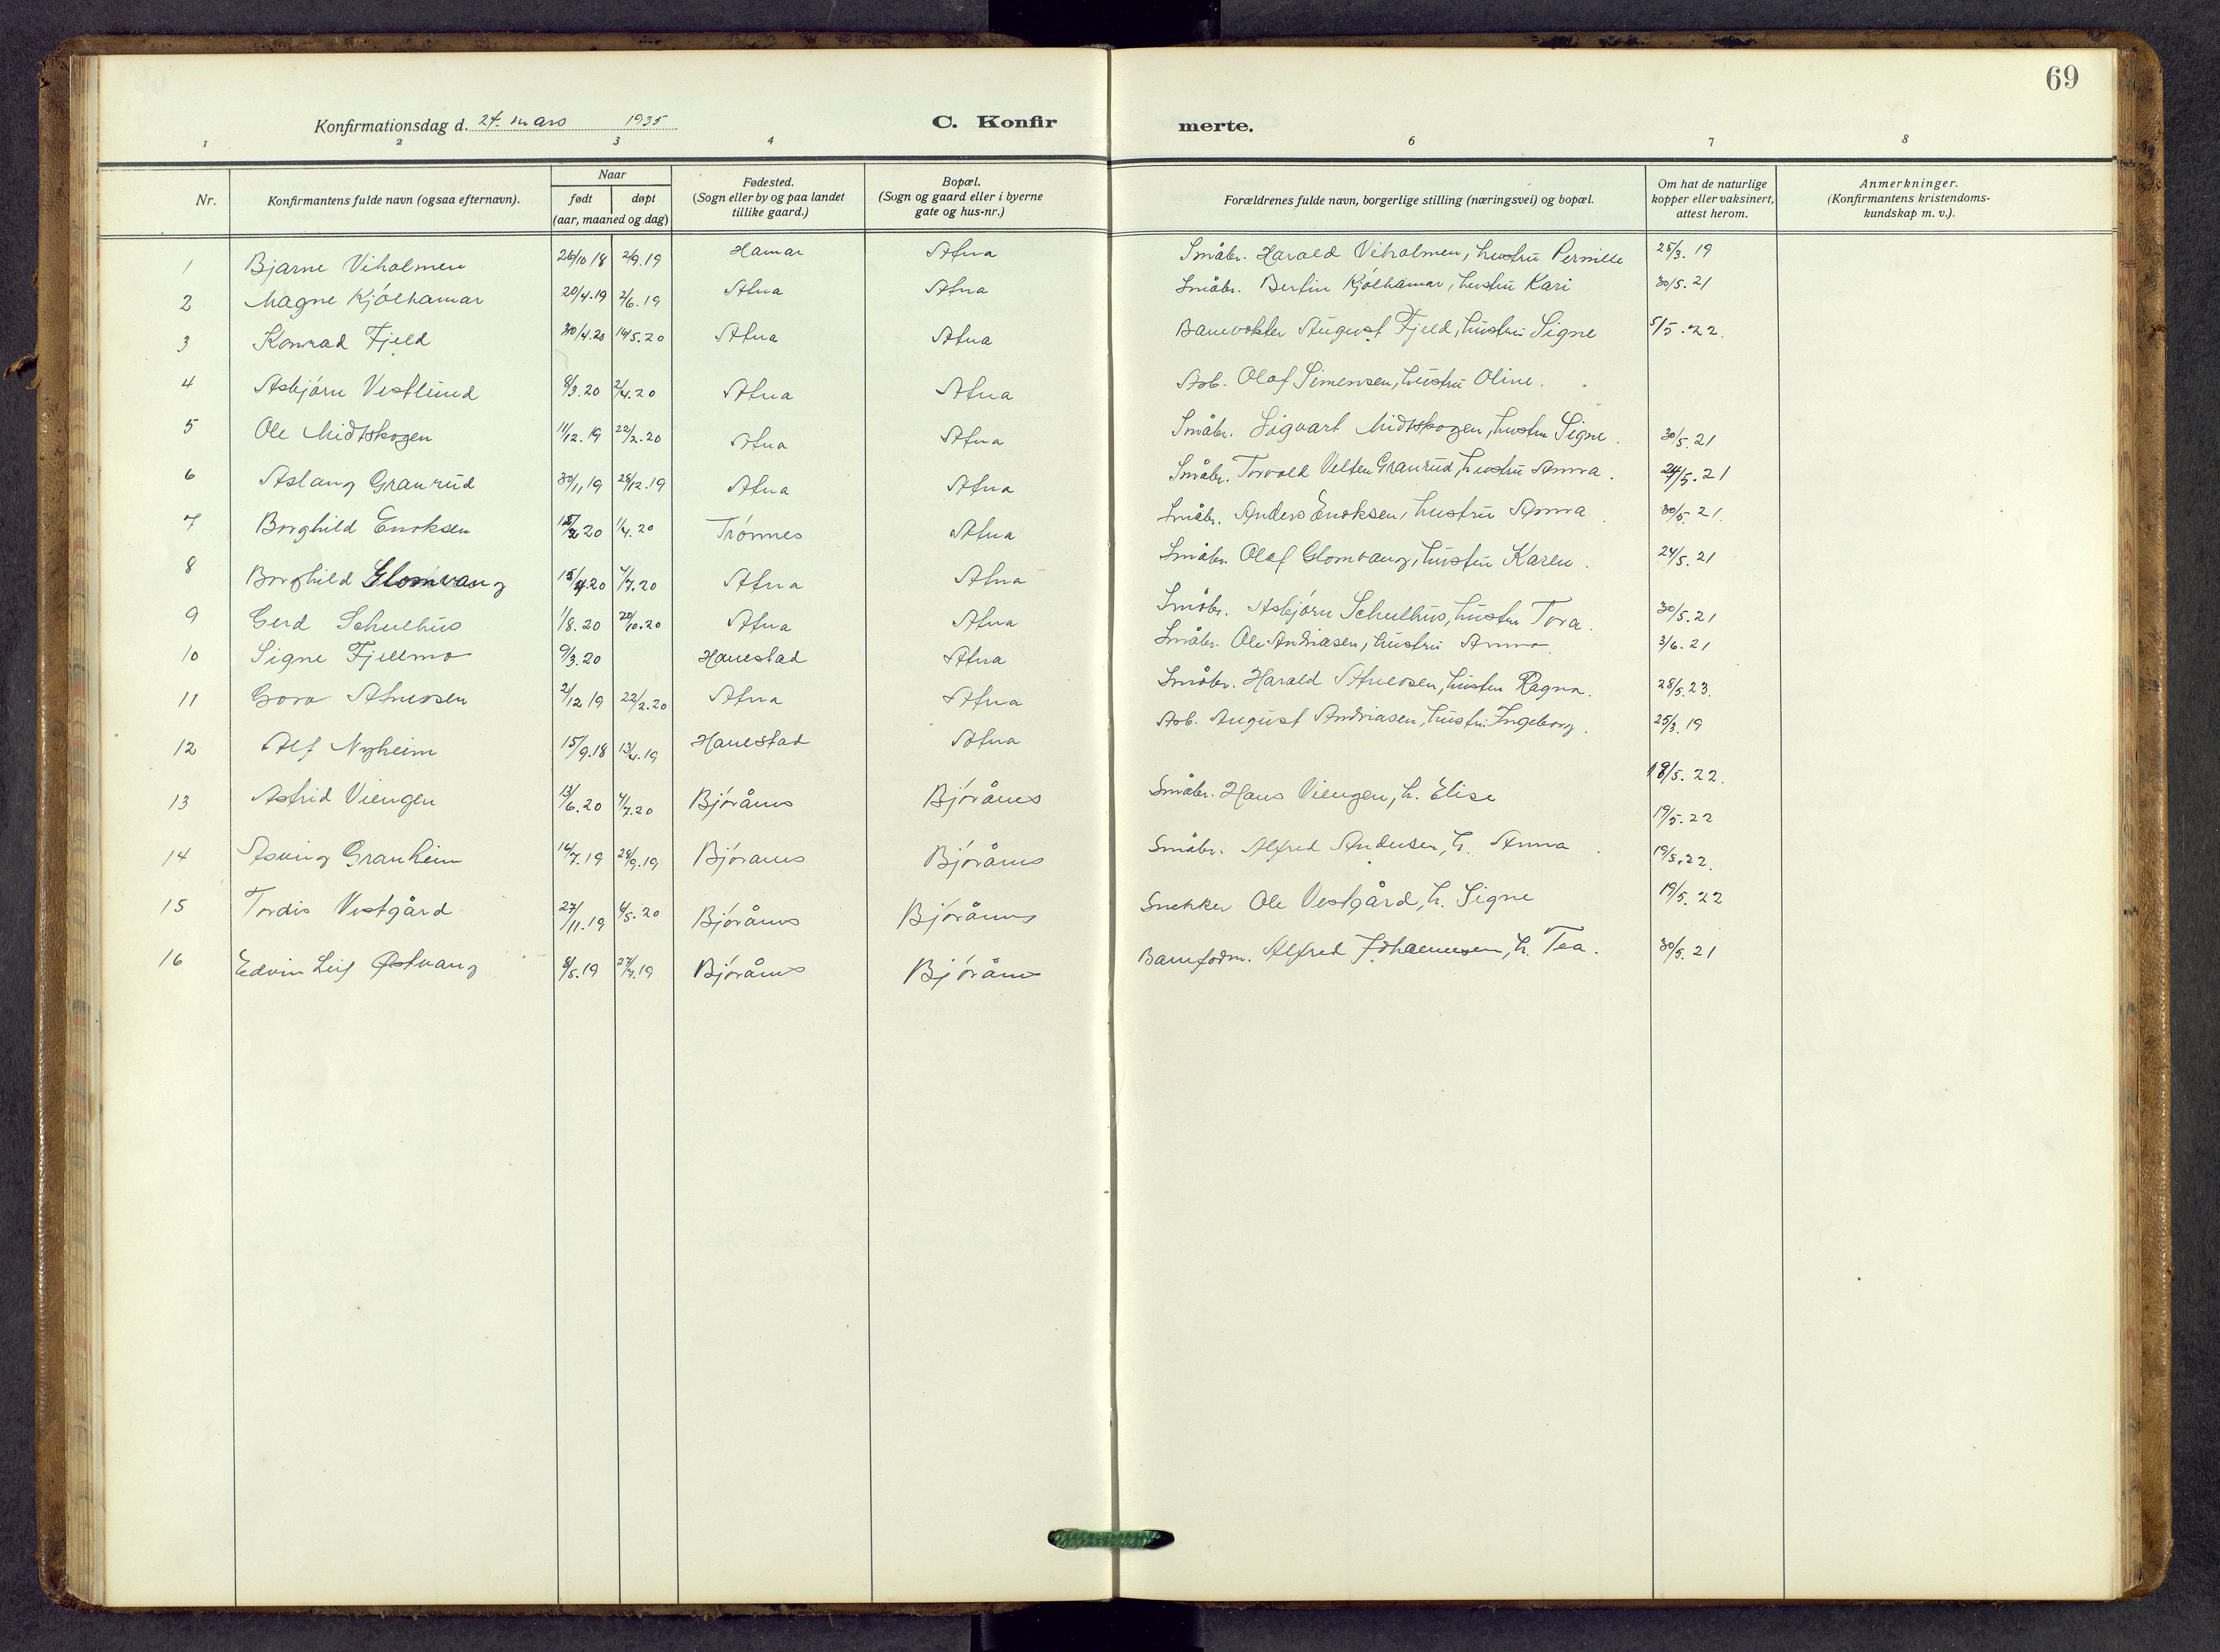 69
Konfirmationsdag d. 24. mars 1935
C. Konfir merte.
1 2 3 4 6 7 8
Nr. Konfirmantens fulde navn (ogsaa efternavn). Naar født døpt (aar, maaned og dag) Fødested. (Sogn eller by og paa landet tillike gaard.) Bopæl. (Sogn og gaard eller i byerne gate og hus-nr.) Forældrenes fulde navn, borgerlige stilling (næringsvei) og bopæl. Om hat de naturlige kopper eller vaksinert, attest herom. Anmerkninger. (Konfirmantens kristendoms-kundskap m. v.).
1 Bjarne Viholmen 26/10 18 2/9.19 Hamar Atna Småbr. Harald Viholmen, hustru Pernille 25/3.19
2 Magne Kjølhamar 20/4.19 2/6.19 Atna Atna Småbr. Bertin Kjølhamar, hustru Kari 30/5.21
3 Konrad Fjeld 30/4.20 14/5.20 Atna Atna Banevokter August Fjeld, hustru Signe 5/5.22.
4 Asbjørn Vestlund 8/3.20 2/4.20 Atna Atna Arb. Olaf Simensen, hustru Oline.
5 Ole Midtskogen 11/12.19 22/2.20 Atna Atna Småbr. Sigvart Midtskogen, hustru Signe. 30/5.21
6 Aslaug Granrud 30/11 19 28/12.19 Atna Atna Småbr. Torvald Velten Granrud, hustru Anna. 24/5.21
7 Borghild Enoksen 20 1/4.20 Trønnes Atna Småbr. Anders Enoksen, hustru Anna. 30/5.21.
8 Borghild Glomvang 15/4.20 4/7.20 Atna Atna Småbr. Olaf Glomvang, hustru Karen. 24/5.21
9 Gerd Schulhus 1/8.20 20/10.20 Atna Atna Småbr. Asbjørn Schulhus, hustru Tora. 30/5.21
10 Signe Fjellmo 9/3.20 Hanestad Atna Småbr. Ole Andriasen, hustru Anna. 3/6.21
11 Atneosen 2/12 19 22/2.20 Atna Atna Småbr. Harald Atneosen, hustru Ragna. 28/5.23.
12 Alf Nyheim 15/9.18 13/4.19 Hanestad Atna Arb. August Andriasen, hustru Ingeborg. 25/3.19
13 Astrid Viengen 13/6.20 4/7.20 Bjørånes Bjørånes Småbr. Hans Viengen, h. Elise 18/5.22.
19/5.22
14 Granheim 16/7.19 28/9.19 Bjøranes Bjørånes Småbr. Alfred Andersen, h. Anna. 19/5.22.
15 Tordis Vestgård 27/11.19 4/5.20 Bjørånes Bjørånes Snekker Ole Vestgård, h. Signe 19/5.22
16 Edvin Leif Østvang 8/5.19 27/7.19 Bjørånes Bjørånes Baneform. Alfred Johannesen, h. Tea. 30/5.21